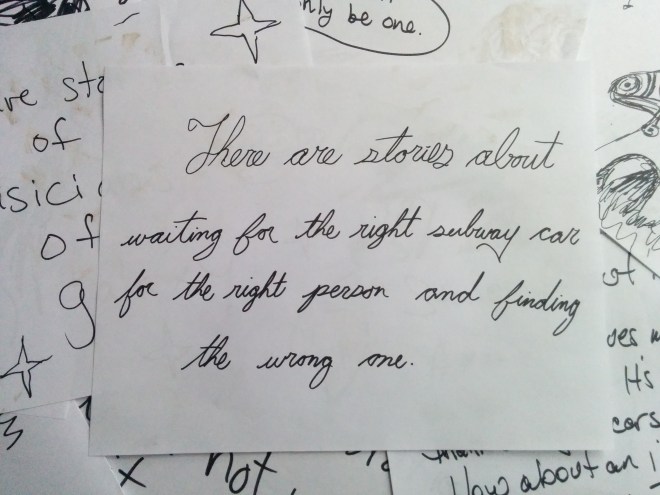 nly be one.
There are stories about
waiting for the right subway car
for the right person and finding
the wrong one.
of
of
g
x not
How about an